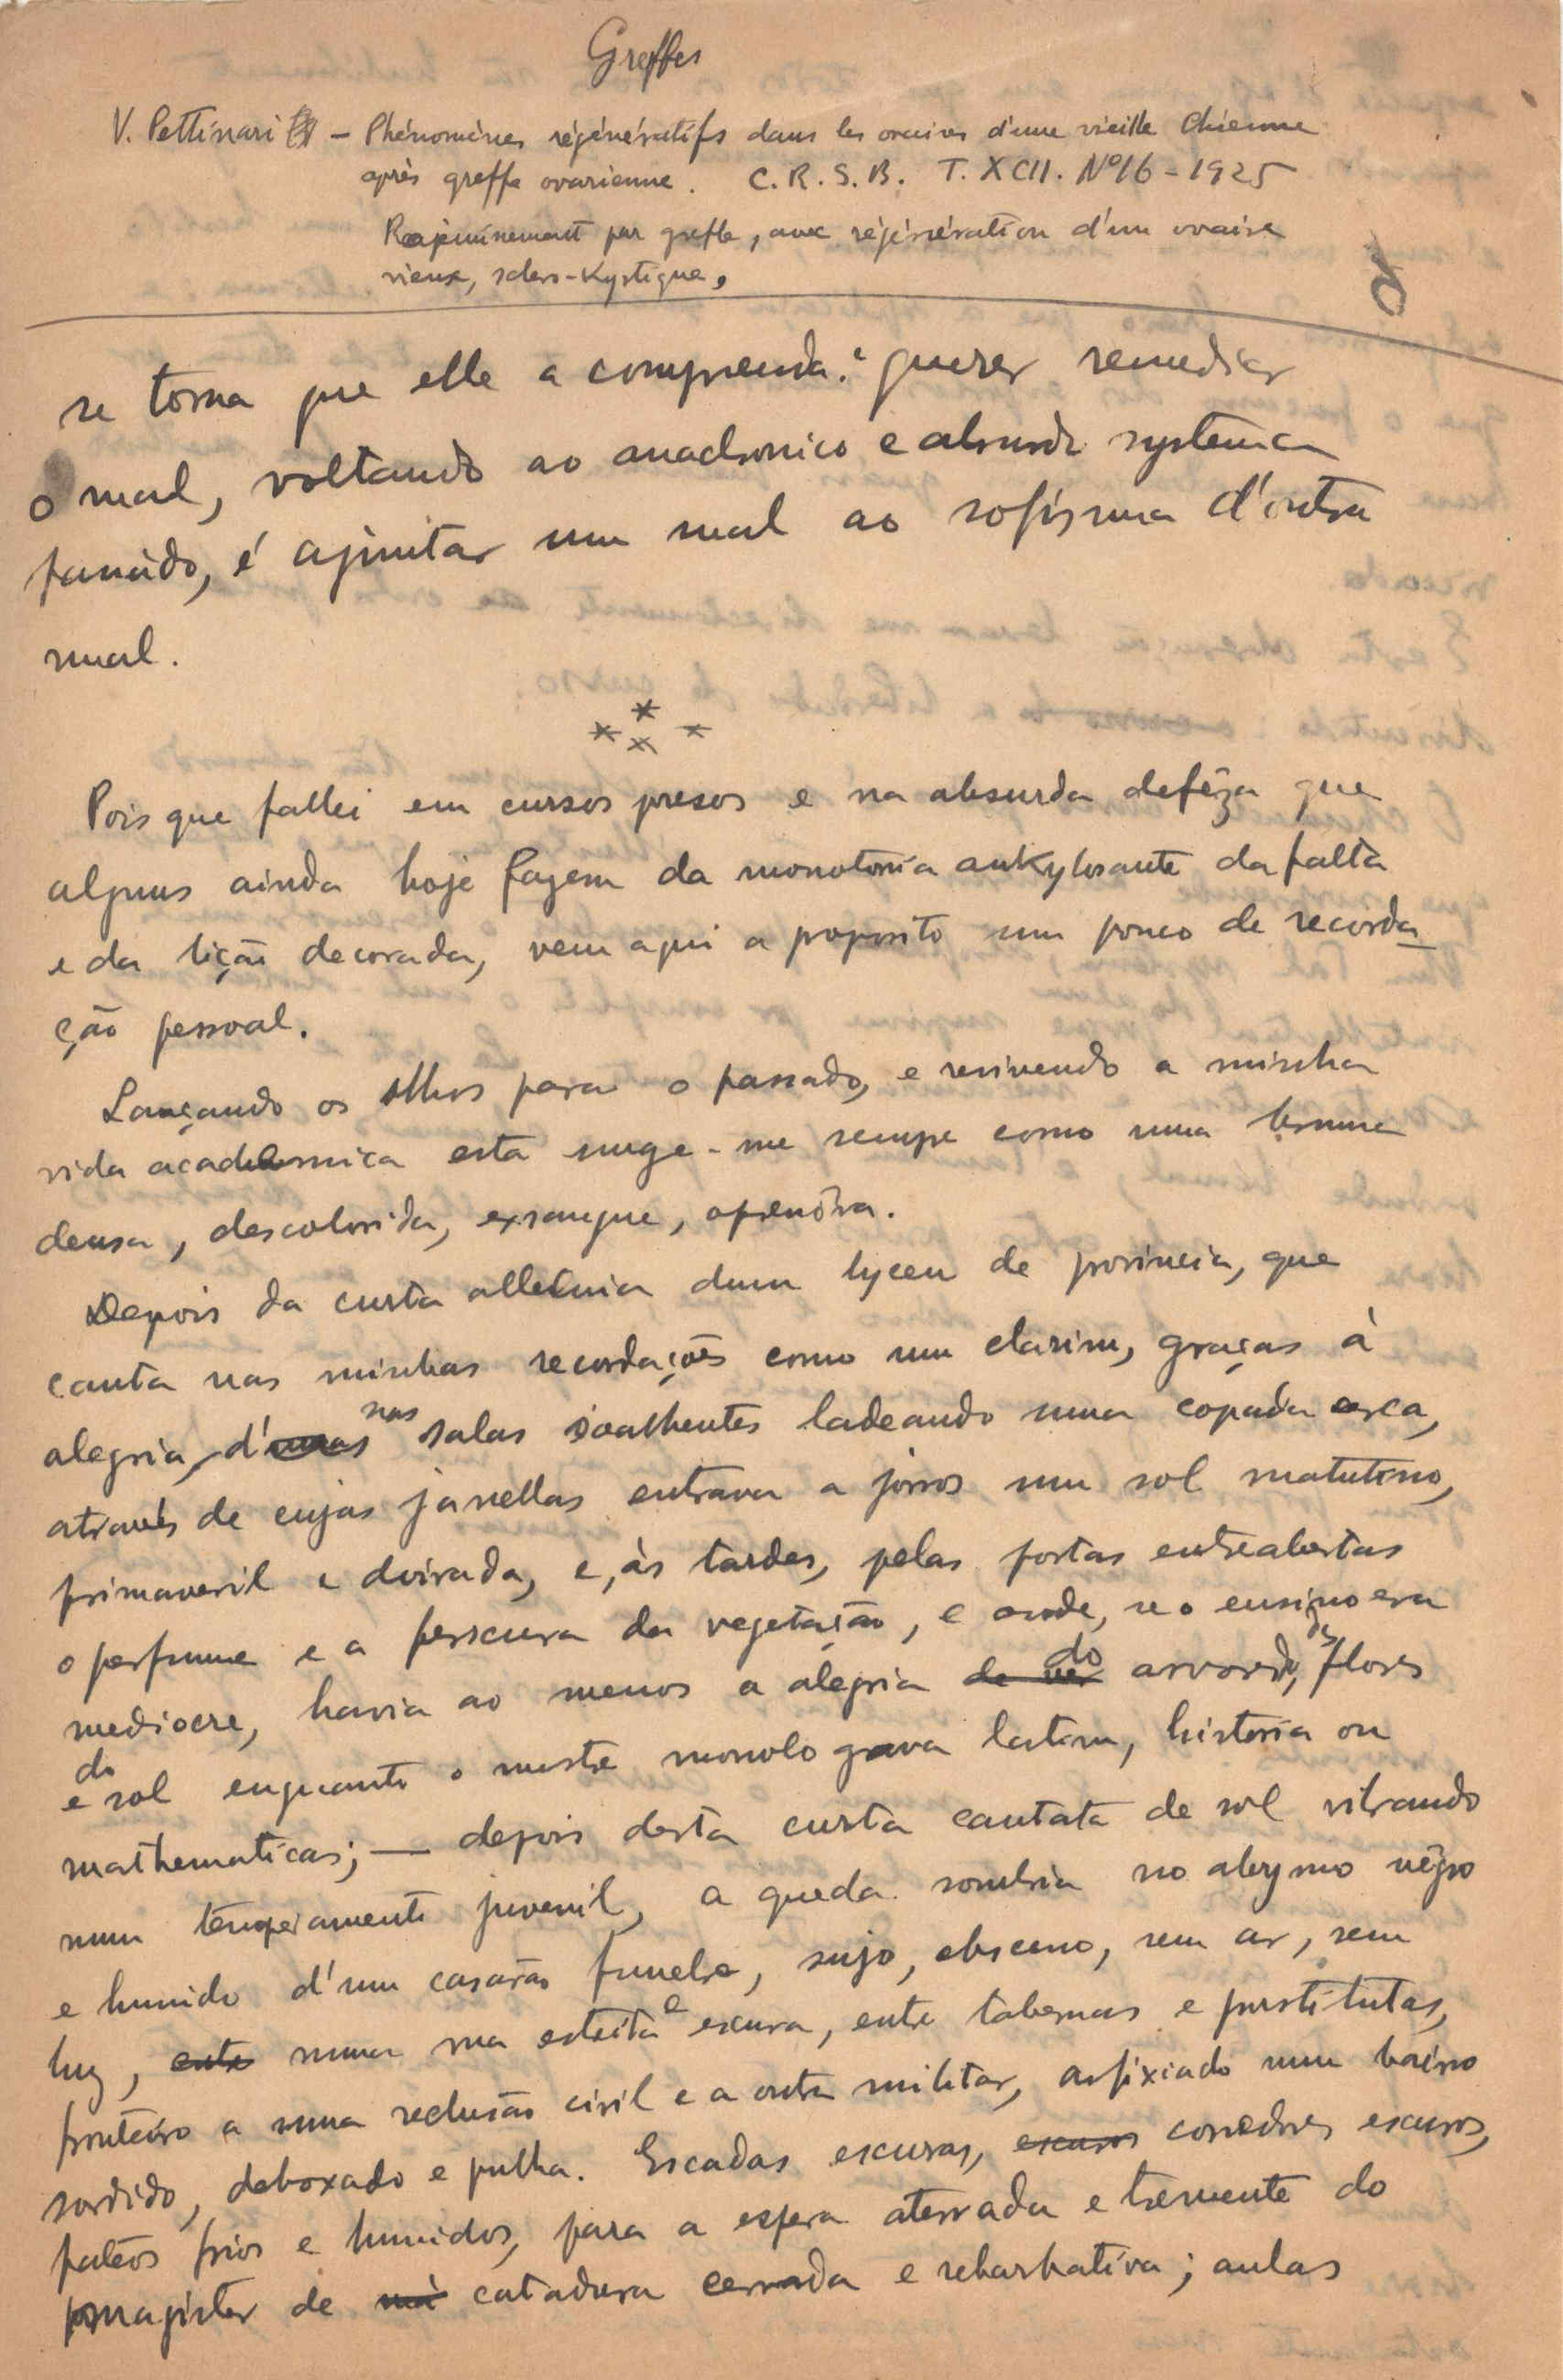 Greffes
V. Pettinari — Phénomènes régénératifs dans les ovaires d'une vieille chienne
après greffe ovarienne. C. R. S. B. T. XCII. Nº 16 - 1925
Rajeunissement par greffe, avec régénération d'un ovaire
vieux, sclero-kystique,
se torna que elle a comprenda. querer remediar
o mal, voltando ao anachronico e absurdo systema
fanado, é ajuntar um mal ao sofisma d'outro
mal.
* * * *
Pois que fallei em cursos presos e na absurda defêza que
alguns ainda hoje fazem da monotonia ankylosante da falta
e da lição decorada, vem aqui a proposito um pouco de recorda
ção pessoal.
Lançando os olhos para o passado, e revivendo a minha
vida academica esta surge-me sempre como uma
densa, descolorida, exsangue,
Depois da curta alleluia dum lyceu de provincia, que
canta nas minhas recordações como um clarim, graças á
alegria, d' nas salas soalhentes ladeando uma copada cerca,
através de cujas janellas entrava a jorros um sol matutino,
primaveril e doirada, e, ás tardes, pelas portas entreabertas
o perfume e a frescura da vegetação, e onde, se o ensino era
mediocre, havia ao menos a alegria de ver do arvoredo, das flores
e do sol enquanto o mestre monologava latim, historia ou
mathematicas; — depois desta curta cantata de sol vibrando
num temperamento juvenil, a queda sombria no abysmo nêgro
e humido d'um casarão funebre, sujo, obsceno, sem ar, sem
luz, entre numa rua estreita e escura, entre tabernas e prostitutas,
fronteiro a uma reclusão civil e a outra militar, asfixiado num bairro
sordido, deboxado e pulha. Escadas escuras, escuros corredores escuros,
pateos frios e humidos, para a espera aterrada e tremente do
magister de má catadura cerrada e rebarbativa; aulas